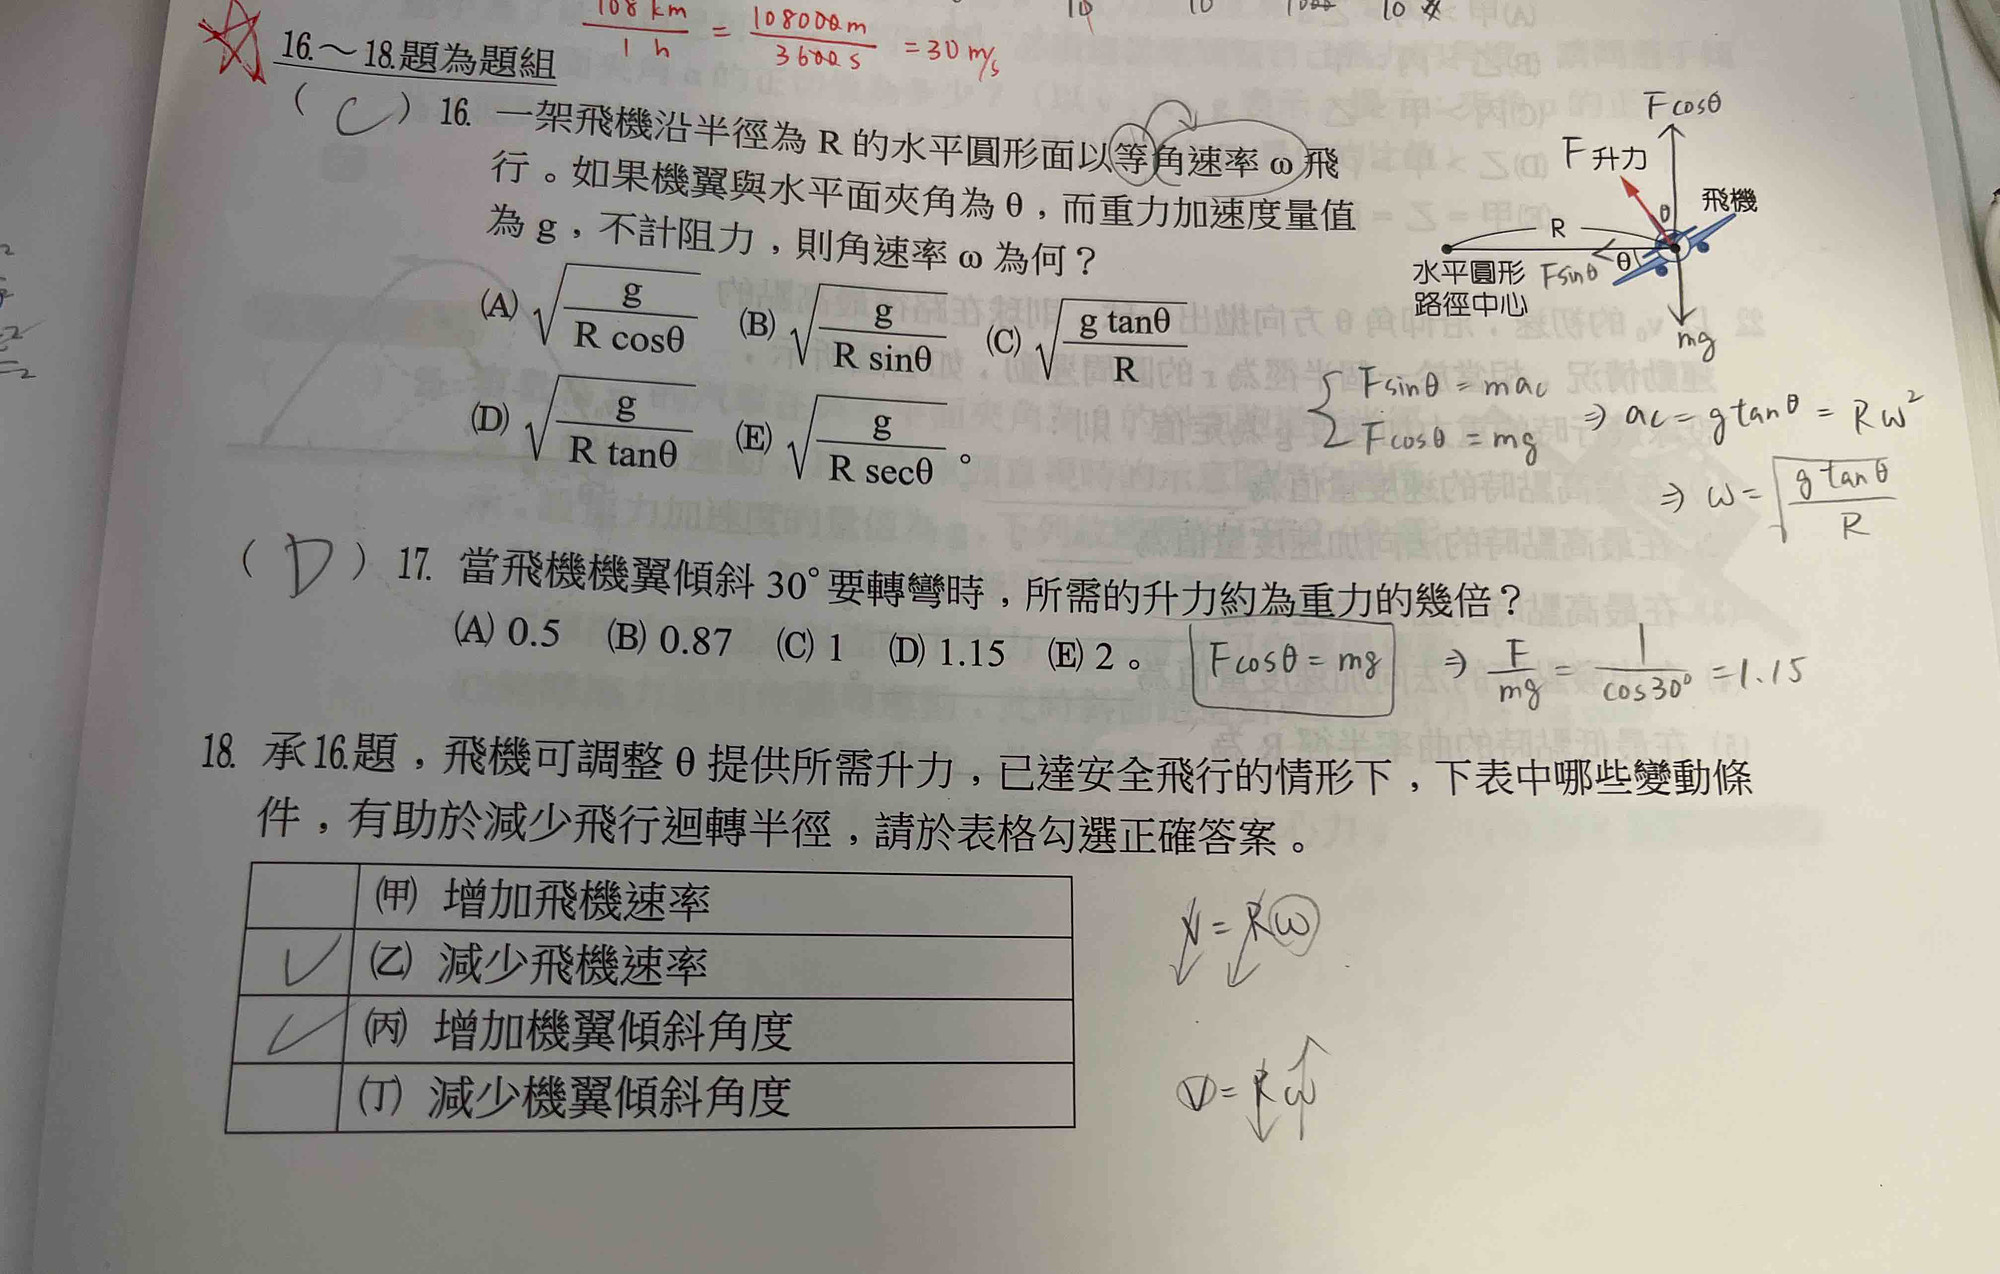 108 km / 1 h = 108000m / 3600s = 30 m/s
16.～18.題為題組
( C ) 16. 一架飛機沿半徑為 R 的水平圓形面以等角速率 ω 飛
行。如果機翼與水平面夾角為 θ，而重力加速度量值
為 g，不計阻力，則角速率 ω 為何？
(A) √(g / R cosθ) (B) √(g / R sinθ) (C) √(g tanθ / R)
(D) √(g / R tanθ) (E) √(g / R secθ)。
F cosθ
F 升力
θ
飛機
R
θ
水平圓形
路徑中心
F sinθ
mg
{ F sinθ = mac
F cosθ = mg
⇒ ac = g tanθ = Rω²
⇒ ω = √(g tanθ / R)
( D ) 17. 當飛機機翼傾斜 30° 要轉彎時，所需的升力約為重力的幾倍？
(A) 0.5 (B) 0.87 (C) 1 (D) 1.15 (E) 2。
F cosθ = mg ⇒ F / mg = 1 / cos30° = 1.15
18. 承16.題，飛機可調整 θ 提供所需升力，已達安全飛行的情形下，下表中哪些變動條
件，有助於減少飛行迴轉半徑，請於表格勾選正確答案。
(甲) 增加飛機速率
✓ (乙) 減少飛機速率
✓ (丙) 增加機翼傾斜角度
(丁) 減少機翼傾斜角度
V = Rω
V = Rω